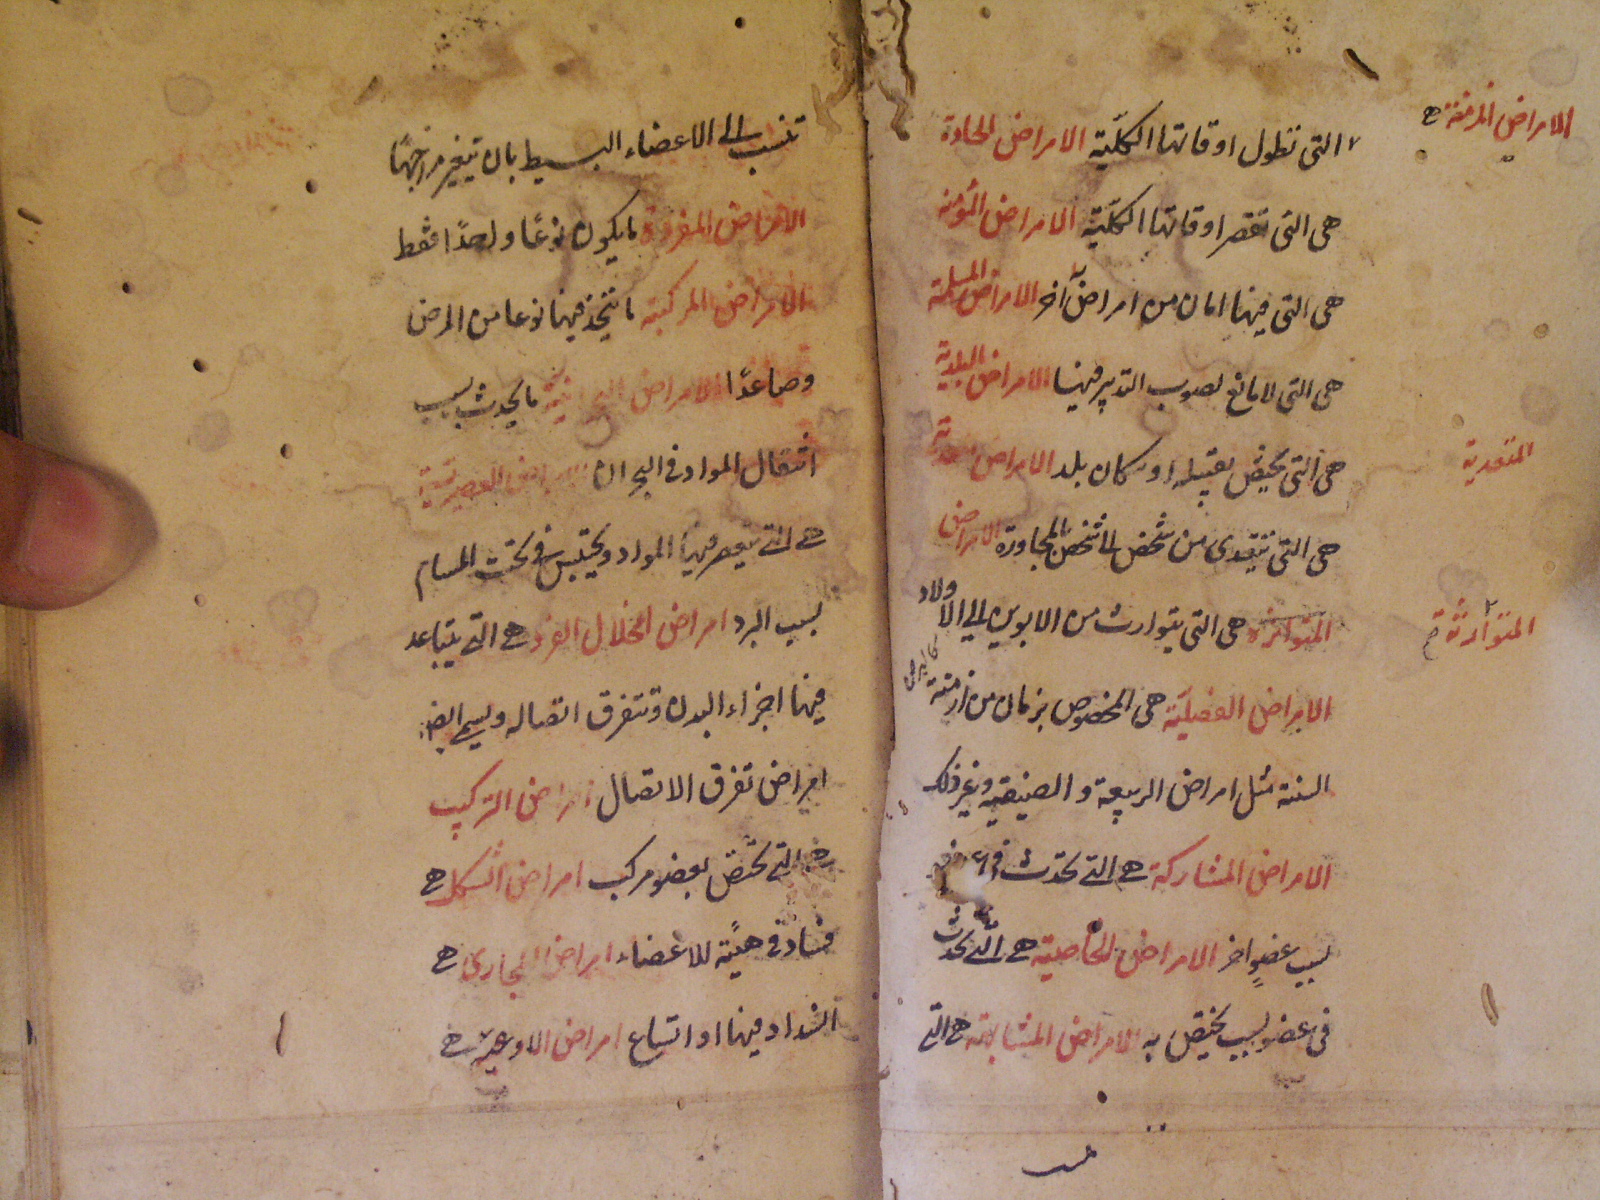 الامراض المزمنة هى
التى تطول اوقاتها الكلّية الامراض الحادة
هى التى تقصر اوقاتها الكلّية الامراض المؤمنه
هى التى فيها امان من امراض آخر الامراض المسلمة
هى التى لا مانع لصوب التدبير فيها الامراض البلدية
هى التى يختص بقبيله او سكان بلد الامراض
المتعدية
هى التى تتعدى من شخص الى شخص المجاورة الامراض
المتوارثة
المتواتره هى التى يتوارث من الابوين الى الاولاد
الامراض الفصليّة هى المخصوص بزمان من ازمنة
السنة مثل امراض الربيعية و الصيفية وغير ذلك
الامراض المشاركة هى التى تحدث فى عضو
بسبب عضوٍ اخر الامراض الخاصية هى التى تحدث
فى عضو بسبب يختص به الامراض المتشابهة هى التى
تنسب الى الاعضاء البسيط بان تتغير مزاجها
الامراض المفردة ما يكون نوعًا واحدًا فقط
الامراض المركبة ما يتخذ فيها نوعا من المرض
وصاعدًا الامراض البحرانية ما يحدث بسبب
انتقال المواد فى البحران الامراض
هى التى تنعصر فيها المواد ويحتبس فى تحت المسام
بسبب البرد امراض انحلال الفرد هى التى يتباعد
فيها اجزاء البدن و تتفرق اتصاله ويسمى ايضا
امراض تفرق الاتصال امراض التركيب
هى التى تختص بعضو مركب امراض الشكل هى
فساد فى هيئة للاعضاء امراض المجارى هى
انسداد فيها او اتساع امراض الاوعية هى